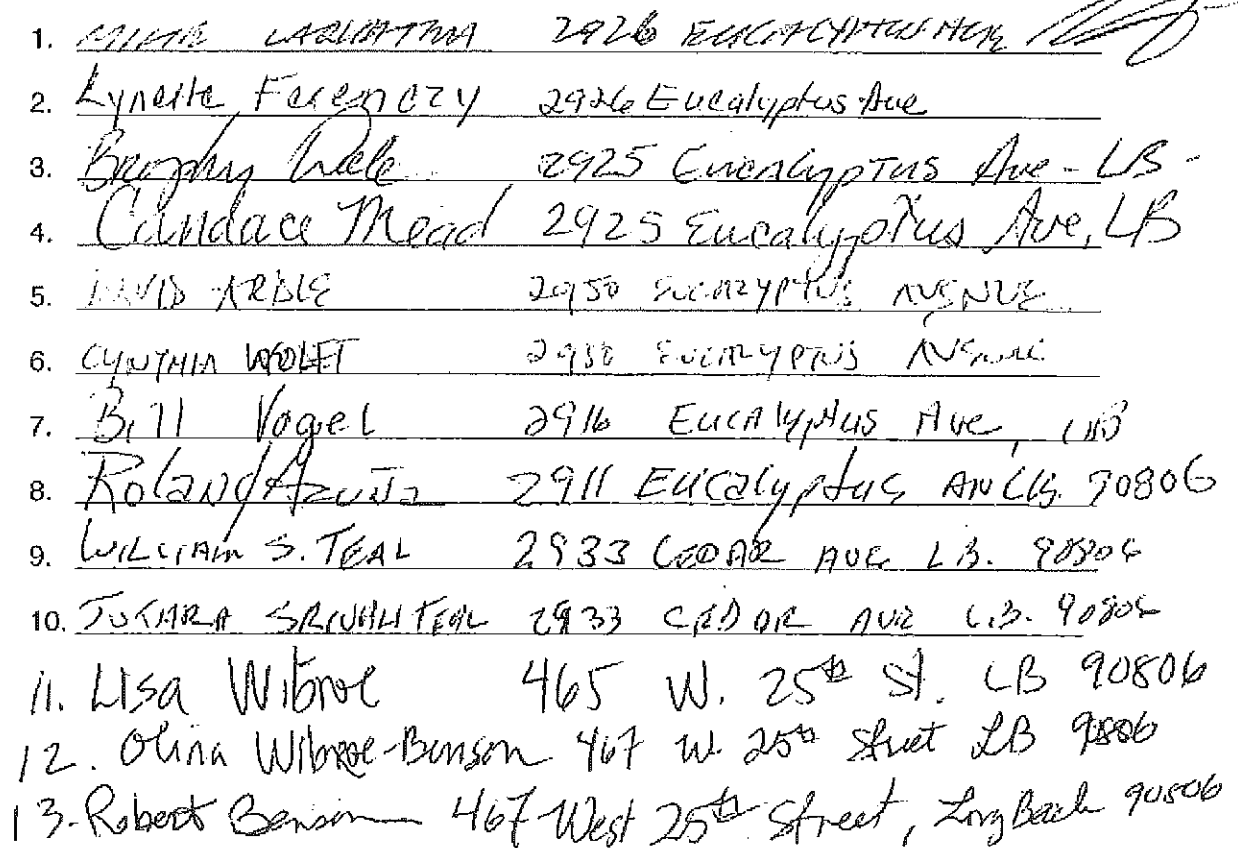 1. 2926 EUCALYPTUS AVE
2. Lynette Ferenczy 2926 Eucalyptus Ave
3. Brophy 2925 Eucalyptus Ave - LB -
4. Candace Mead 2925 Eucalyptus Ave, LB
5. DAVID ARBLE 2950 EUCALYPTUS AVENUE
6. CYNTHIA 2950 EUCALYPTUS AVENUE
7. Bill Vogel 2916 Eucalyptus Ave, LB
8. Roland 2911 Eucalyptus Av LB. 90806
9. WILLIAM S. TEAL 2933 CEDAR AVE LB. 90806
10. TEAL 2933 CEDAR AVE L.B. 90806
11. Lisa Wibroe 465 W. 25th St. LB 90806
12. Olina Wibroe-Benson 467 W. 25th Street LB 90806
13. Robert Benson 467 West 25th Street, Long Beach 90806